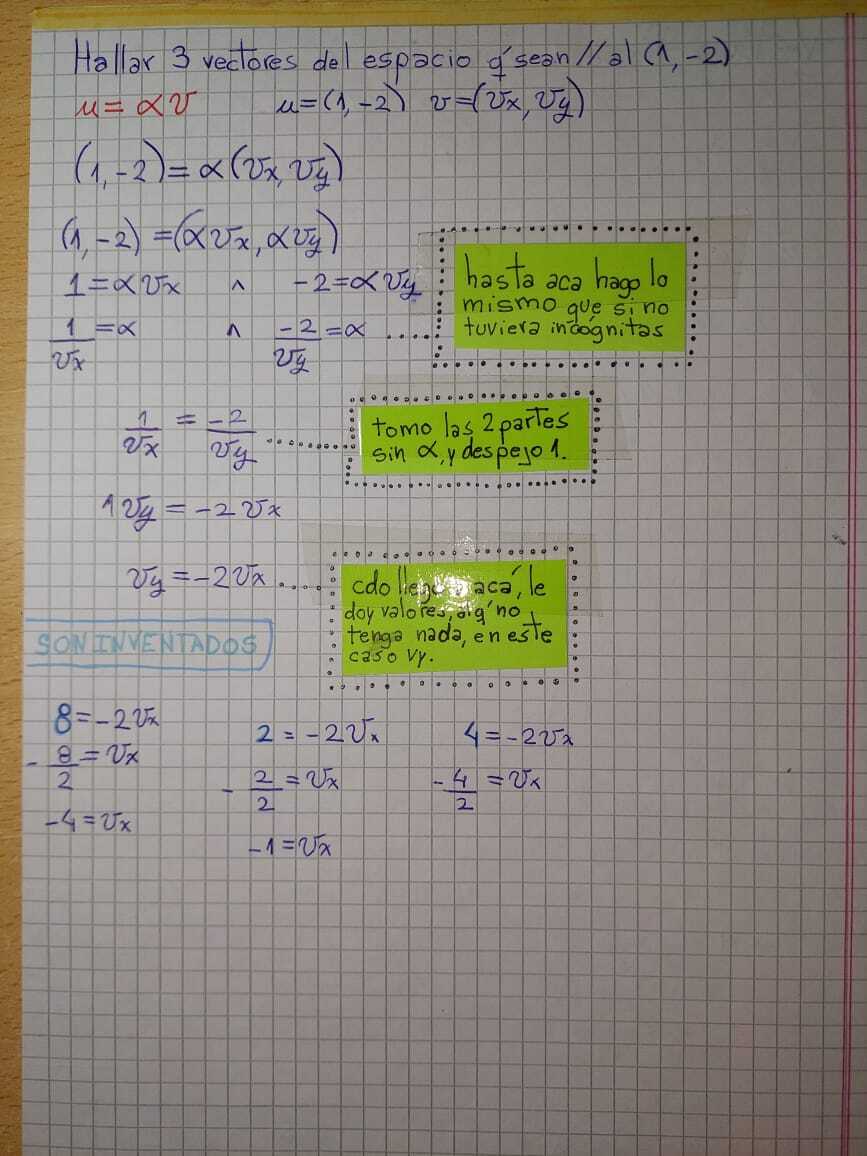 Hallar 3 vectores del espacio q' sean // al (1,-2)
u = αv u=(1,-2) v=(vx, vy)
(1,-2) = α(vx, vy)
(1,-2) = (αvx, αvy)
1 = αvx ∧ -2 = αvy
1/vx = α ∧ -2/vy = α .....
hasta aca hago lo
mismo que si no
tuviera incógnitas
1/vx = -2/vy ..........
tomo las 2 partes
sin α, y despejo 1.
1vy = -2vx
vy = -2vx .....
cdo acá, le
doy valores, q' no
tenga nada, en este
caso vy.
SON INVENTADOS
8 = -2vx
-8/2 = vx
-4 = vx
2 = -2vx
-2/2 = vx
-1 = vx
4 = -2vx
-4/2 = vx